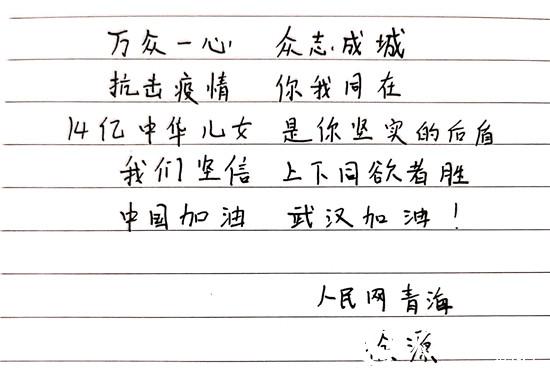 万众一心 众志成城
抗击疫情 你我同在
14亿中华儿女 是你坚实的后盾
我们坚信 上下同欲者胜
中国加油 武汉加油！
人民网青海
源